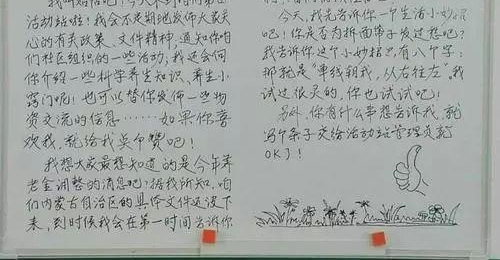 动站啦！我会不定期地发佈大家关
心的有关政策、文件精神，通知你咱
们社区组织的一些活动，我还会向
你介绍一些科学养生知识、养生小
窍门呢！也可以替你发佈一些物
资交流的信息……如果你喜
欢我，就给我点个赞吧！
我想大家最想知道的是今年养
老金调整的消息吧！据我所知，咱
们内蒙古自治区的具体文件还没下
来，到时候我会在第一时间告诉你
今天，我先告诉你一个生活小妙招
吧！你是否为拆面袋子发过愁呢？
我告诉你这个小妙招只有八个字：
那就是“单线朝我，从右往左”我
试过很灵的，你也试试吧！
另外，你有什么事想告诉我，就
写个条子交给活动站管理员就
OK了！